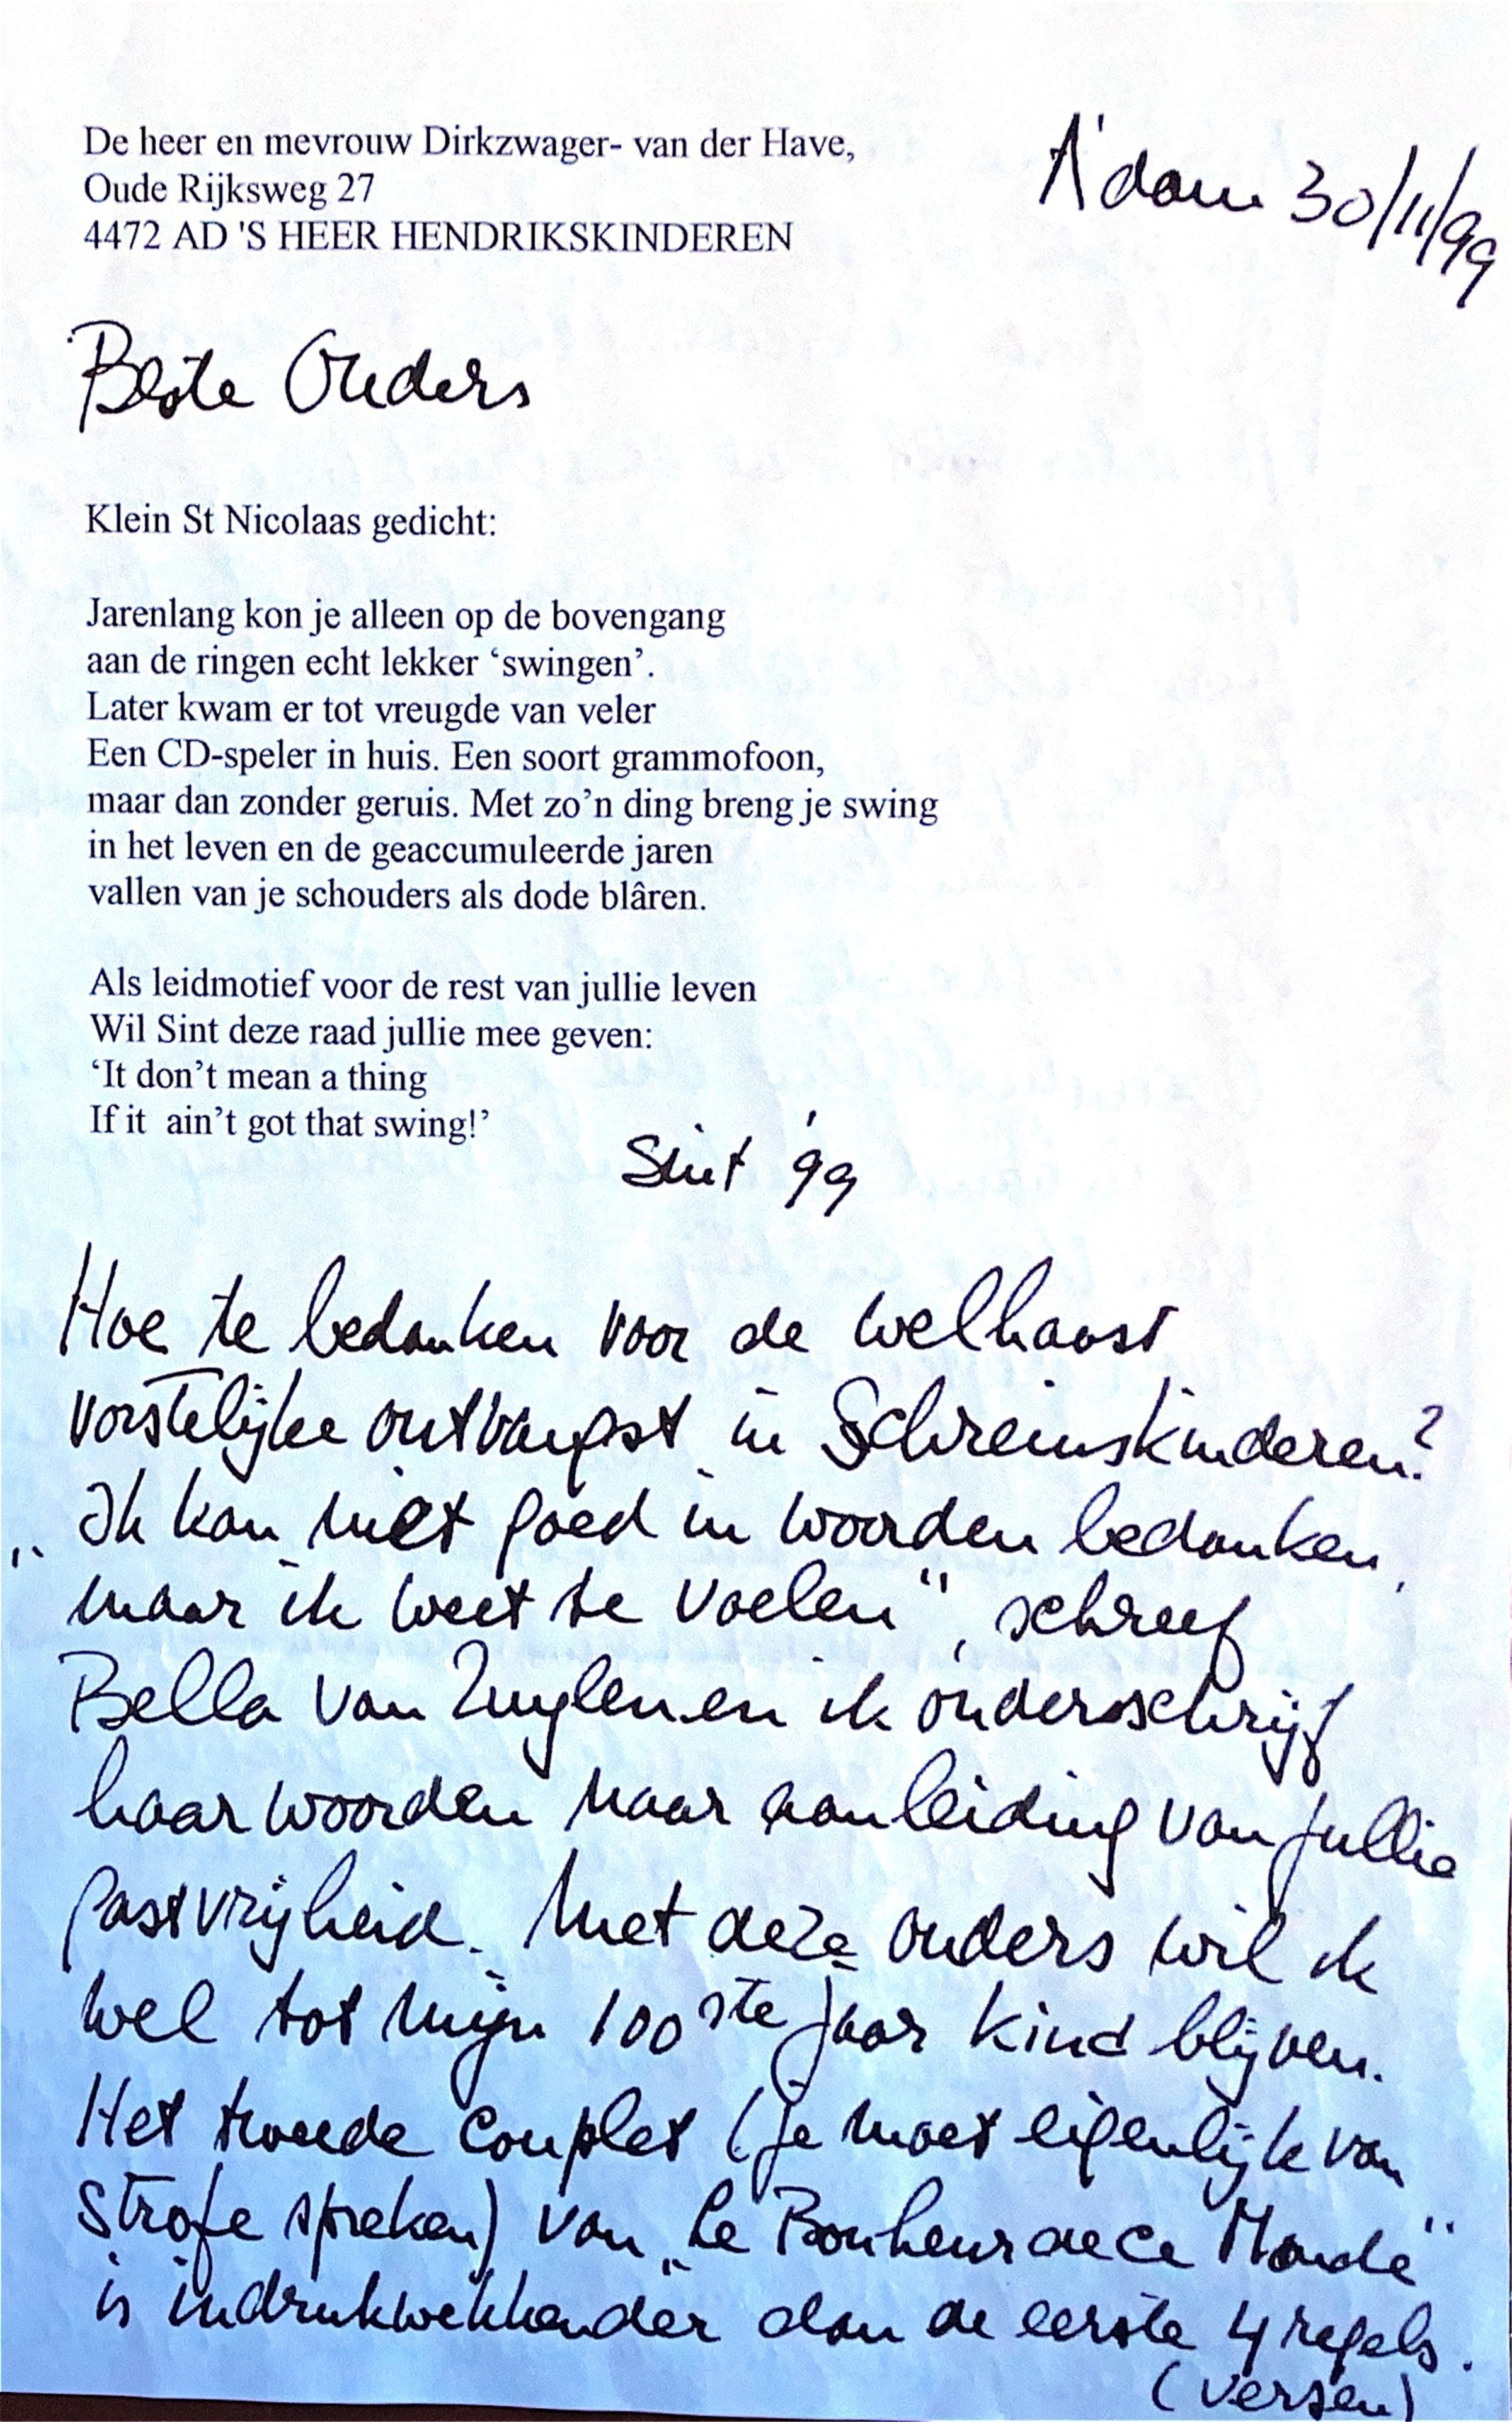 De heer en mevrouw Dirkzwager- van der Have,
Oude Rijksweg 27
4472 AD 'S HEER HENDRIKSKINDEREN
A'dam 30/11/99
Beste Ouders
Klein St Nicolaas gedicht:
Jarenlang kon je alleen op de bovengang
aan de ringen echt lekker ‘swingen’.
Later kwam er tot vreugde van veler
Een CD-speler in huis. Een soort grammofoon,
maar dan zonder geruis. Met zo’n ding breng je swing
in het leven en de geaccumuleerde jaren
vallen van je schouders als dode blâren.
Als leidmotief voor de rest van jullie leven
Wil Sint deze raad jullie mee geven:
‘It don’t mean a thing
If it ain’t got that swing!’
Sint '99
Hoe te bedanken voor de welhaast
vorstelijke ontvangst in Schreinskinderen?
„Ik kan niet goed in woorden bedanken,
maar ik weet te voelen", schreef
Bella van Zuylen en ik onderschrijf
haar woorden naar aanleiding van jullie
gastvrijheid. Met deze ouders wil ik
wel tot mijn 100ste jaar kind blijven.
Het tweede couplet (je moet eigenlijk van
strofe spreken) van „Le Bonheur de ce Monde"
is indrukwekkender dan de eerste 4 regels.
(versen)